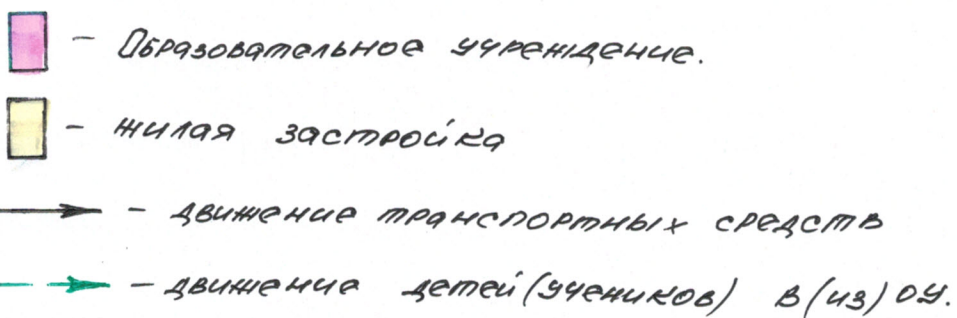 - Образовательное учреждение.
- жилая застройка
- движение транспортных средств
- движение детей (учеников) в (из) ОУ.